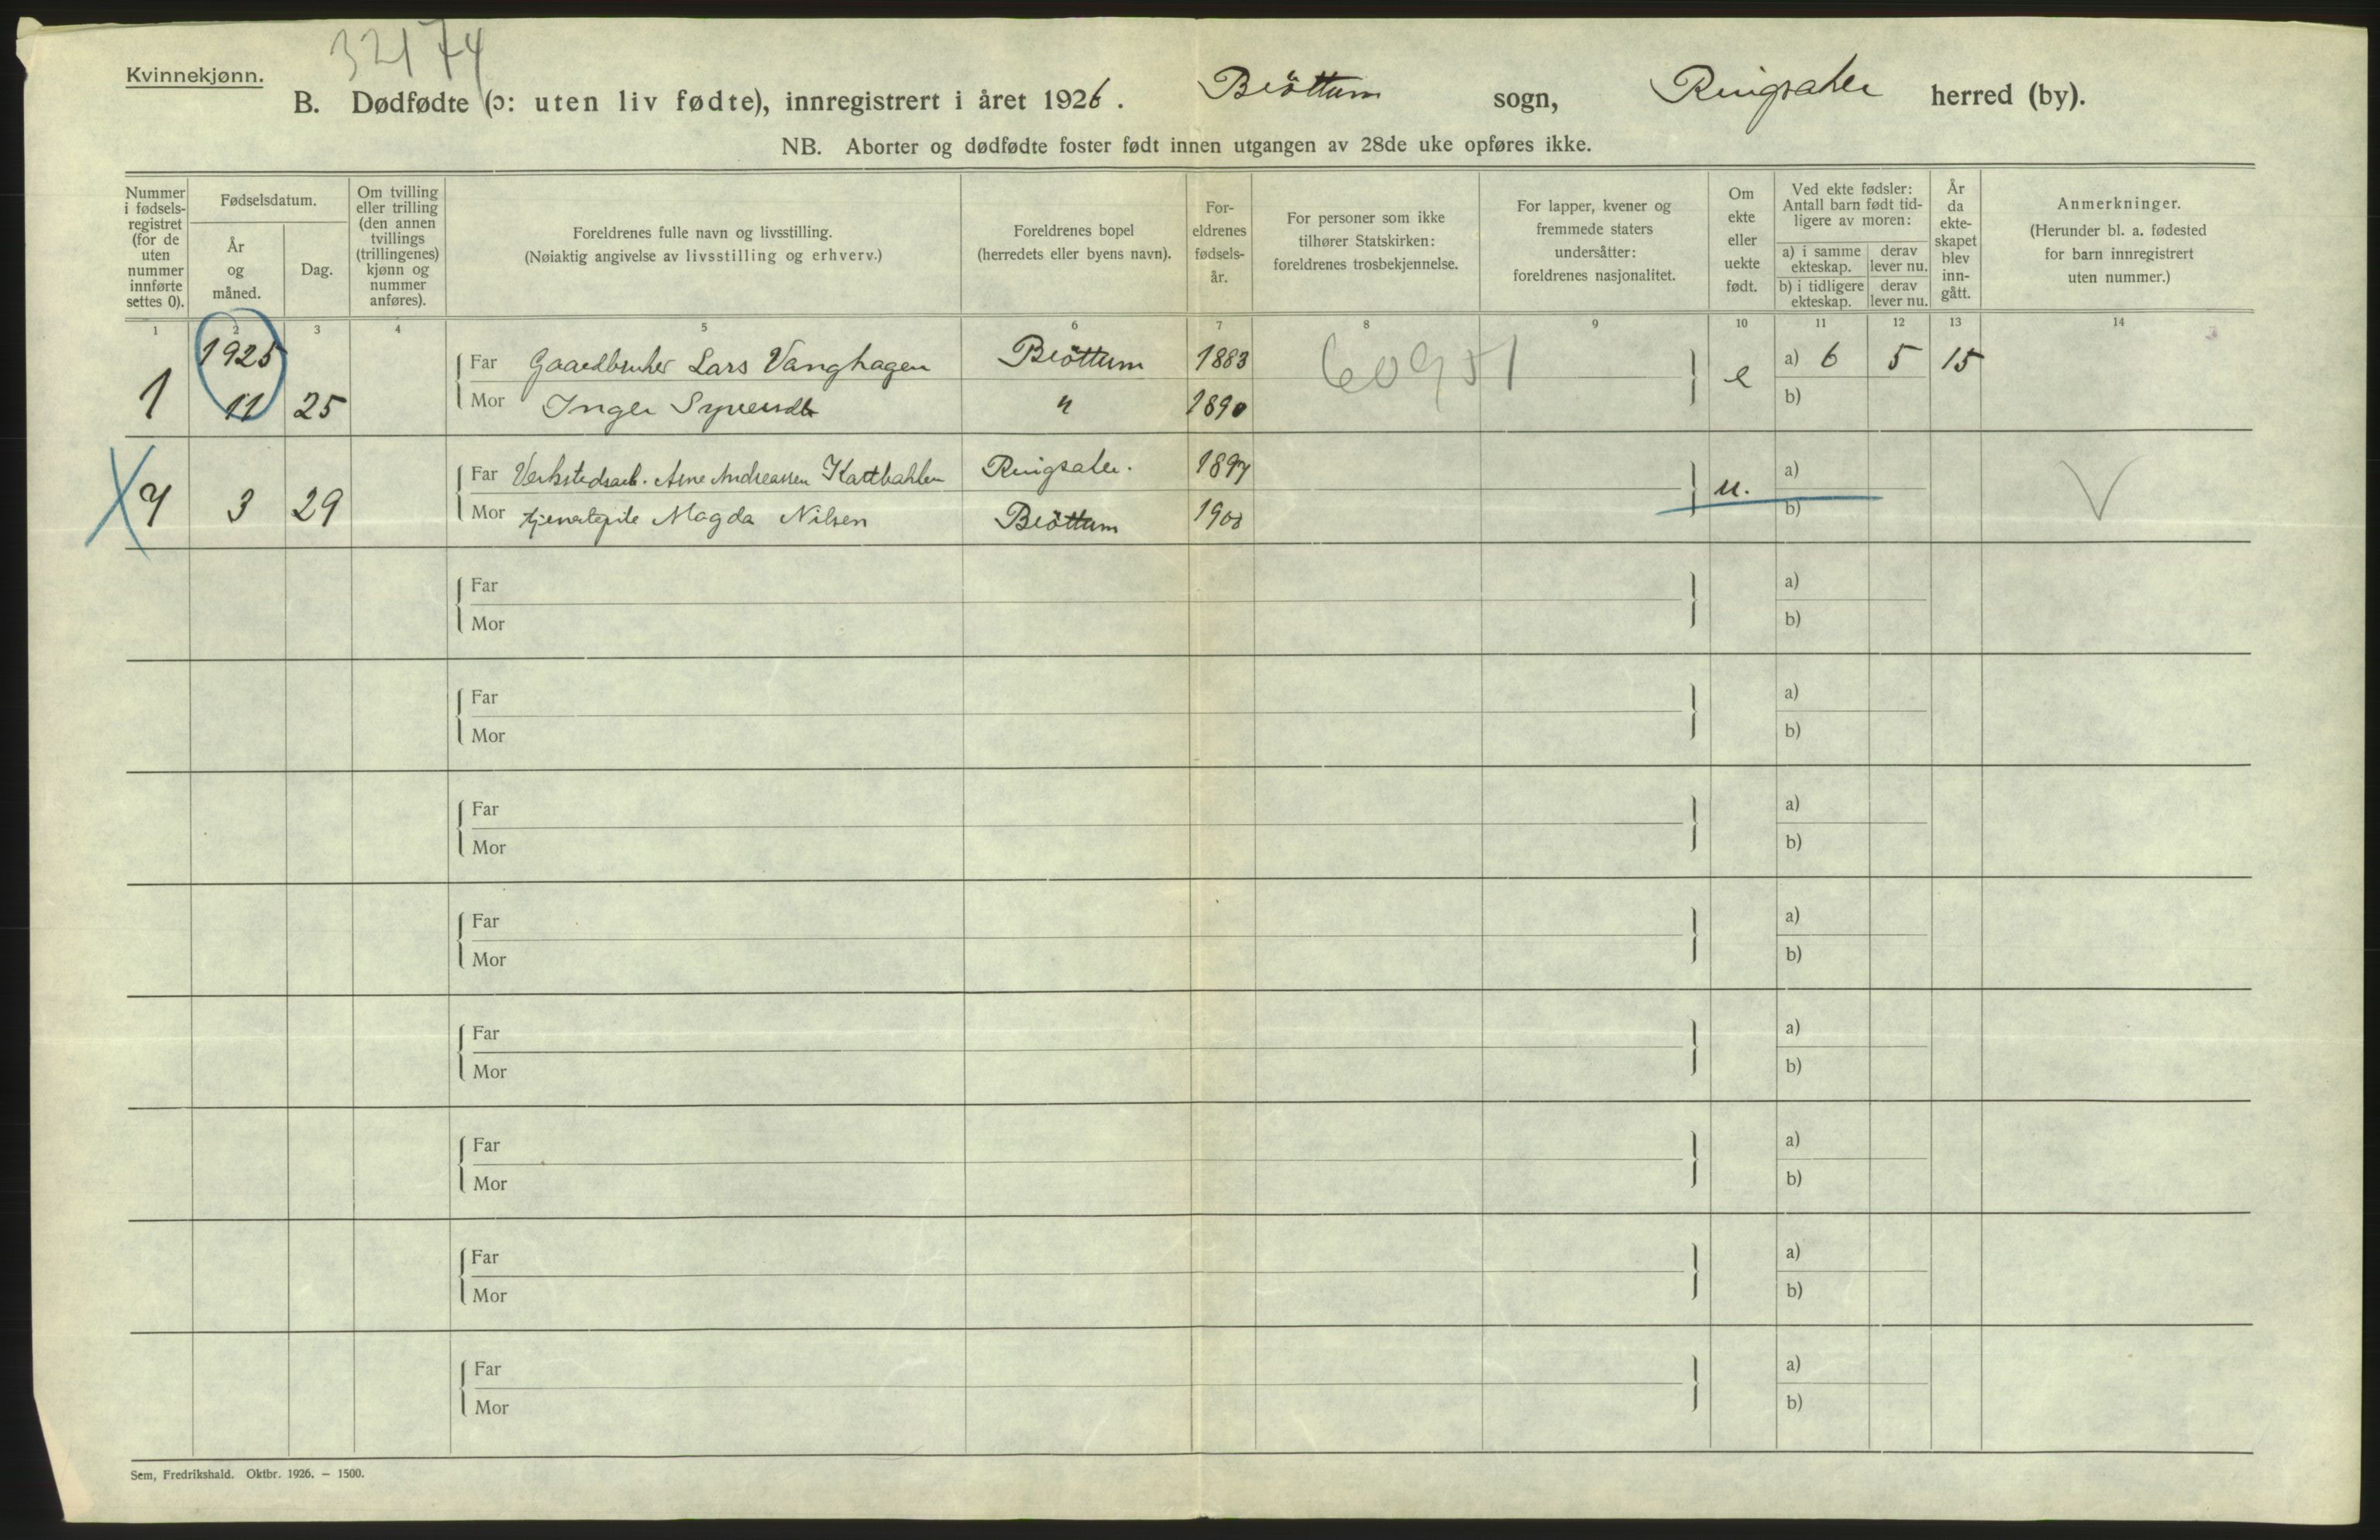 32174
Kvinnekjønn.
B. Dødfødte (ɔ: uten liv fødte), innregistrert i året 1926. Bröttum sogn, Ringsaker herred (by).
NB. Aborter og dødfødte foster født innen utgangen av 28de uke opføres ikke.
Nummer i fødsels-registret (for de uten nummer innførte settes 0).
Fødselsdatum.
År og måned.
Dag.
Om tvilling eller trilling (den annen tvillings (trillingenes) kjønn og nummer anføres).
Foreldrenes fulle navn og livsstilling.
(Nøiaktig angivelse av livsstilling og erhverv.)
Foreldrenes bopel
(herredets eller byens navn).
For-eldrenes fødsels-år.
For personer som ikke tilhører Statskirken: foreldrenes trosbekjennelse.
For lapper, kvener og fremmede staters undersåtter: foreldrenes nasjonalitet.
Om ekte eller uekte født.
Ved ekte fødsler: Antall barn født tid-ligere av moren:
a) i samme ekteskap. derav lever nu.
b) i tidligere ekteskap. derav lever nu.
År da ekte-skapet blev inn-gått.
Anmerkninger.
(Herunder bl. a. fødested for barn innregistrert uten nummer.)
1 2 3 4 5 6 7 8 9 10 11 12 13 14
1925
Far Gaardbruker Lars Vanghagen Bröttum 1883 60951 a) 6 5 15
1 11 25 Mor Inger Syversdtr " 1890 e b)
Far Verkstedsarb. Arne Andreassen Kattbakken Ringsaker. 1897 a)
4 3 29 Mor tjenestepike Magda Nilsen Bröttum 1900 u. b)
Far a)
Mor b)
Far a)
Mor b)
Far a)
Mor b)
Far a)
Mor b)
Far a)
Mor b)
Far a)
Mor b)
Far a)
Mor b)
Far a)
Mor b)
Sem, Fredrikshald. Oktbr. 1926. – 1500.